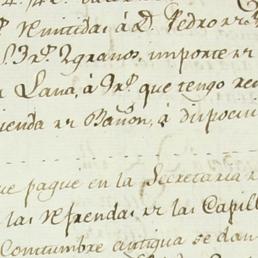 Remitida, á D.ⁿ Pedro
Fr.ˢ y granos, importe de
Lana, á Fr.ˢ que tengo
ienda de Bañon, á disposici
que pague en la Secretaria
las Refrendas de las Capill
Constumbre antigua se dan